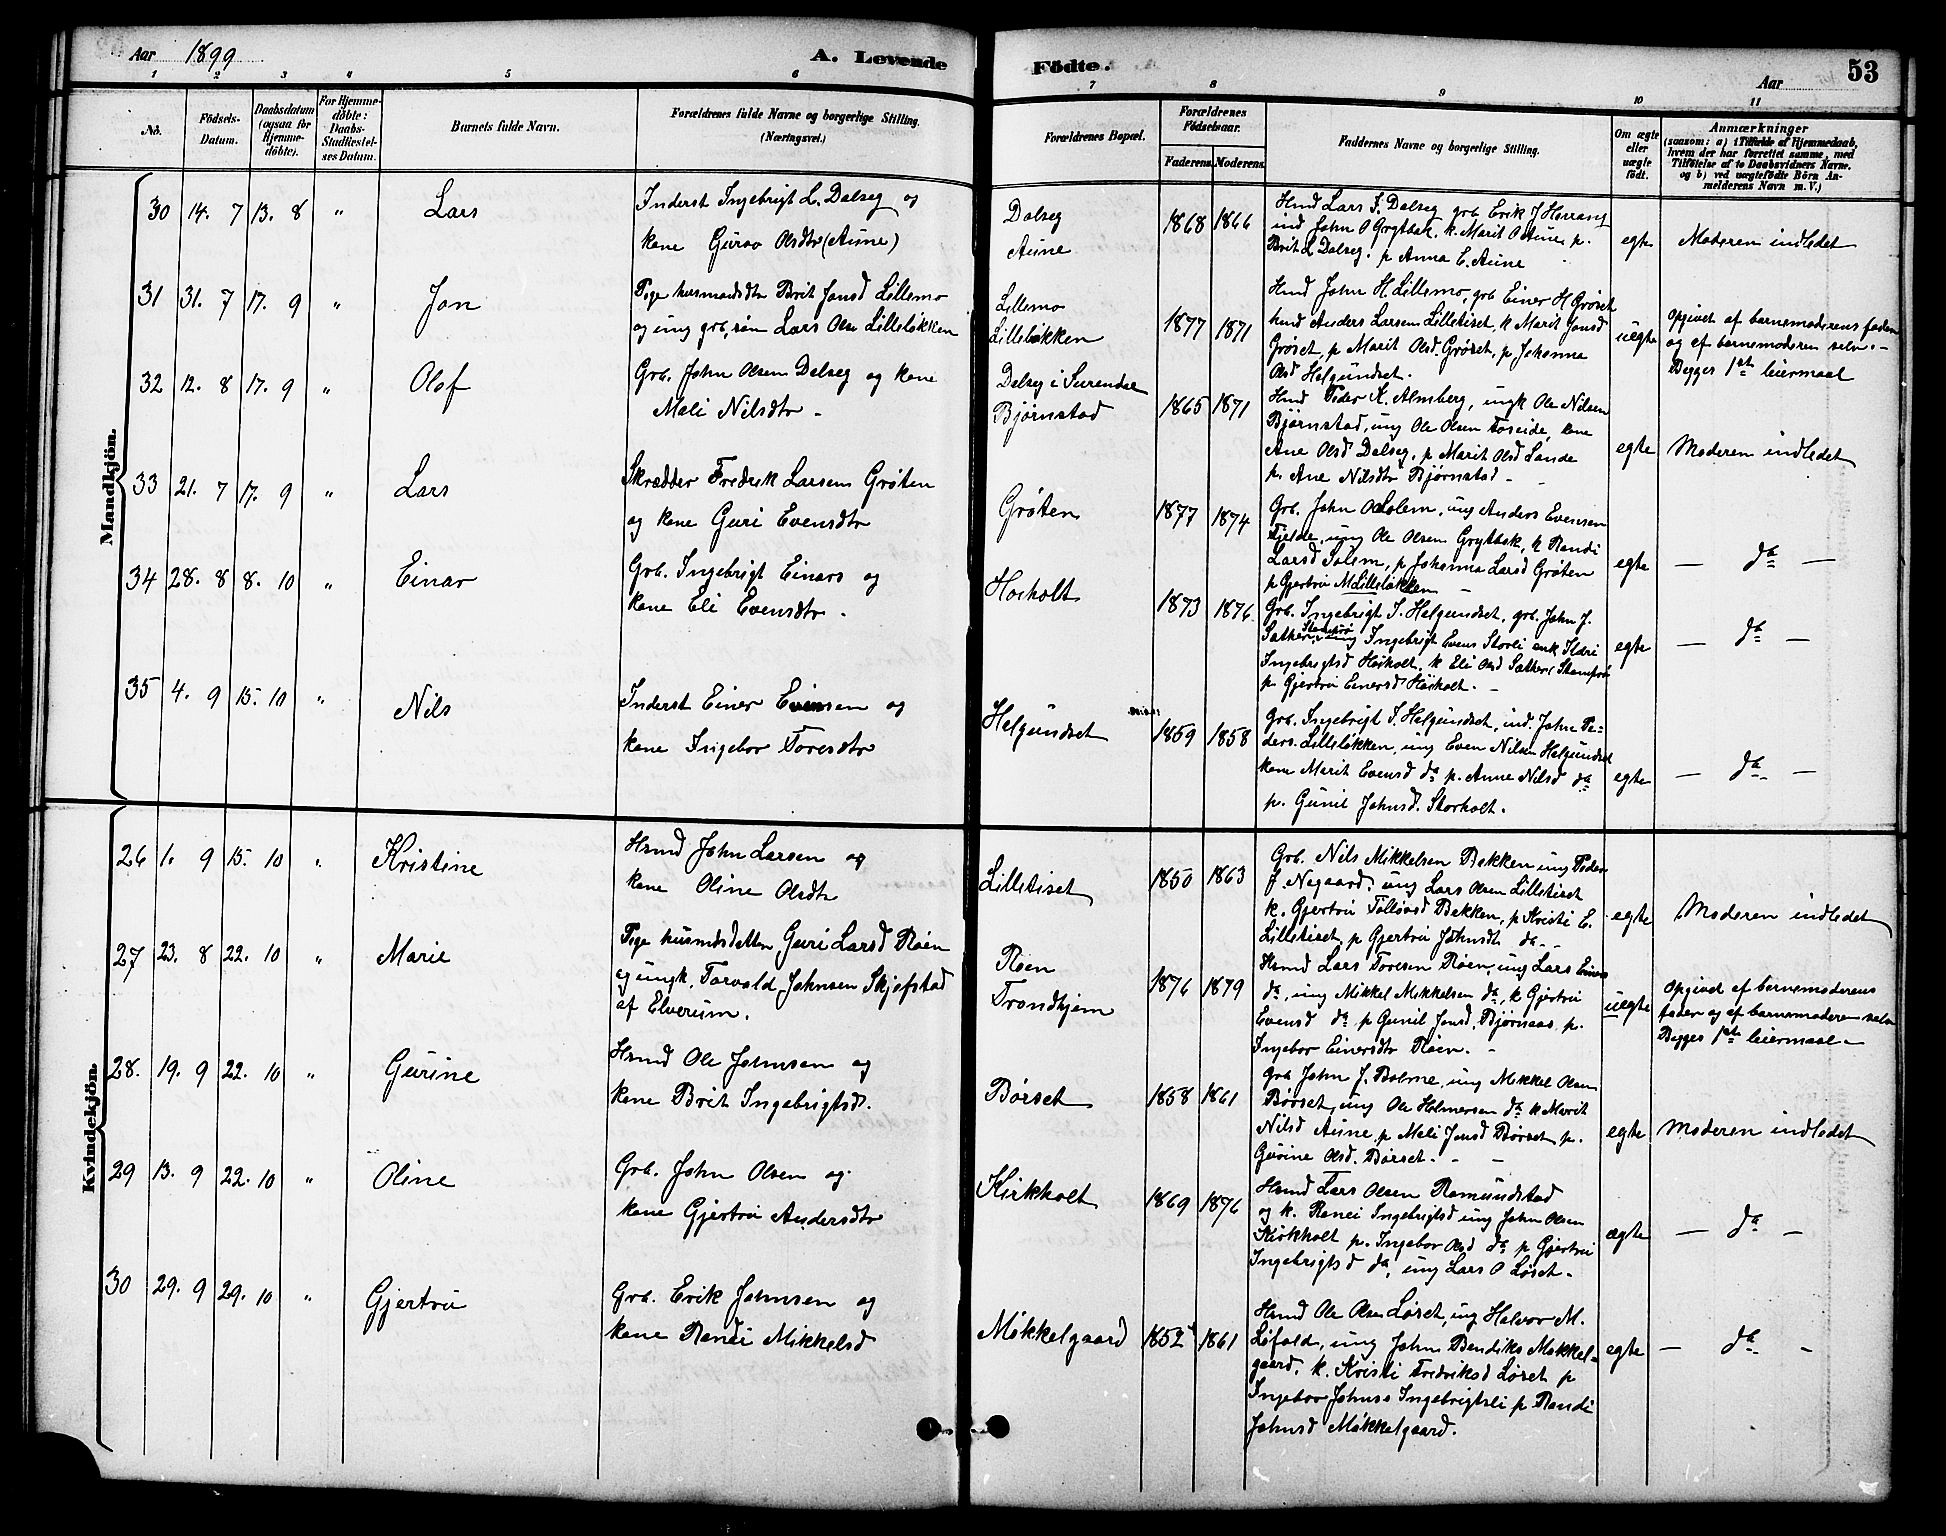 Aar 1899
A. Levende Födte.
Aar
53
1 2 3 4 5 6 7 8 9 10 11
No.
Födsels-Datum.
Daabsdatum (ogsaa for Hjemme-döbte).
For Hjemme-döbte: Daabs-Stadfæstel-ses Datum.
Barnets fulde Navn.
Forældrenes fulde Navne og borgerlige Stilling.
(Næringsvei.)
Forældrenes Bopæl.
Forældrenes Födselsaar.
Faderens. Moderens.
Faddernes Navne og borgerlige Stilling.
Om ægte eller uægte födt.
Anmærkninger
(saasom: a) i Tilfælde af Hjemmedaab,
hvem der har forrettet samme, med
Tilföielse af to Daabsvidners Navne.
og b) ved uægtefödte Börn An-
melderens Navn m. V.)
Mandkjön.
30 14. 7 13. 8 " Lars
Inderst Ingebrigt L. Dalseg og
kone Guroo Olsdtr (Aune)
Dalseg
Aune
1868 1866
Hmd Lars I. Dalseg grb Erik J Herrang
ind John O Grytbak. k. Marit O Aune, p.
Brit L Dalseg. p Anna E. Aune
egte
Moderen indledet
31 31. 7 17. 9 " Jon
Pige husmadsdtr Brit Jonsd Lillemo
og ung grb.søn Lars Olse Lilleløkken
Lillemo
Lilleløkken
1877 1871
Hmd John H. Lillemo, grb Einer H Grøset
hmd Anders Larsen Lilletiset, k Marit Jonsd
Grøset, p Marit Olsd. Grøset, p, Johanna
Olsd Helgundset.
uegte
Opgivet af barnemoderens fader
og af barnemoderen selv. -
Begges 1ste leiermaal
32 12. 8 17. 9 " Olaf
Grb. John Olsen Dalseg og kone
Mali Nilsdtr -
Dalseg i Surendal
Bjørnstad
1865 1871
Hmd Peder K. Almberg, ungk Ole Nilsen
Bjørnstad, ung Ole Olsen Foseide, kone
Ane Olsd Dalseg, p Marit Olsd Lande
p. Ane Nilsdtr Bjørnstad -
egte
Moderen indledet
33 21. 7 17. 9 " Lars
Skrædder Fredrik Larsen Grøten
og kone Guri Evensdtr
Grøten
1877 1874
Grb. John O Solem, ung Anders Evensen
Fjelde, ung Ole Olsen Grytbak, k Randi
Larsd Solem, p Johanna Larsd Grøten
p Gjertru M Lilleløkken -
egte
— da —
34 28. 8 8. 10 " Einar
Grb. Ingebrigt Einars og
kone Eli Evensdtr -
Hoiholt
1873 1876
Grb. Ingebrigt I. Helgundset, grb. John J.
Sather, Stamprø ung Ingebrigt Evens Storli enk Ildri
Ingebrigtsd Høiholt. k Eli Olsd Sather, Stamprø
p. Gjertru Einersd Høiholt. -
egte
— da —
35 4. 9 15. 10 " Nils
Inderst Einer Evensen og
kone Ingebor Toresdtr
Helgundset
1859 1858
Grb. Ingebrigt I. Helgundset, ind. John Pe-
ders. Lilleløkken, ung Even Nilsen Helgundset
kone Marit Evensd da p. Anne Nilsd da
p. Gunil Johnsd. Storholt.
egte
— da —
Kvindekjön.
26 1. 9 15. 10 " Kristine
Hsmd John Larsen og
kone Oline Olsdtr
Lilletiset
1850 1863
Grb. Nils Mikkelsen Bakken ung Peder
J. Negaard, ung Lars Olsen Lilletiset
k. Gjertru Tollevsd Bakken, p Kristi E.
Lilletiset, p Gjertru Johnsdt da -
egte
Moderen indledet
27 23. 8 22. 10 " Marie
Pige husmdsdatter Guri Larsd Røen
og ungk. Torvald Johnsen Skjefstad
af Elverum.
Røen
Trondhjem
1876 1879
Hsmd Lars Toresen Røen, ung Lars Einers
da, ung Mikkel Mikkelsen da, k Gjertru
Evensd da p Gunil Jonsd. Bjørnaas, p.
Ingebor Einersdtr Røen. -
uegte
Opgivet af barnemoderens
fader og af barnemoderen selv
Begges 1ste leiermaal -
28. 19. 9 22. 10 " Gurine
Hsmd Ole Johnsen og
kone Brit Ingebrigtsd.
Børset
1858 1861
Grb John J. Bolme, ung Mikkel Olsen
Børset, ung Ole Halvorsen da k Marit
Nilsd Aune p Mali Jonsd Børset p.
Gurine Olsd. Børset. -
egte
Moderen indledet
29 13. 9 22. 10 " Oline
Grb. John Olsen og
kone Gjertru Andersdtr
Kirkholt
1869 1876
Hsmd Lars Olsen Romundstad
og k. Randi Ingebrigtsd ung John Olsen
Kirkholt p. Ingebor Olsd da p Gjertru
Ingebrigtsd da, ung Lars O Løset.
ægte
— da —
30 29. 9 29. 10 " Gjertru
Grb. Erik Johnsen og
kone Randi Mikkelsd
Mökkelgaard
1852 1861
Hsmd Ole Olsen Løset, ung Halvor M.
Løfald, ung John Bendiks Møkkel-
gaard, k. Kristi Fredriksd Løset p
Ingebor Johnsd Ingebrigtsli p Randi
Johnsd Møkkelgaard.
egte
— da —